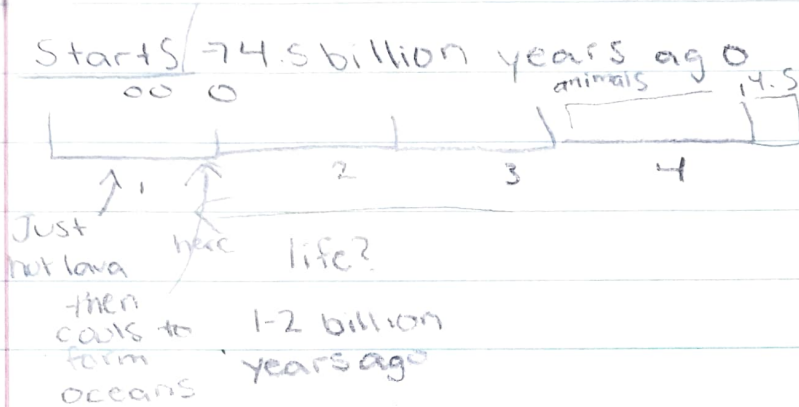 Starts → 4.5 billion years ago
animals
4.5
1 2 3 4
Just
hot lava
then
cools to
form
oceans
here
life?
1-2 billion
years ago